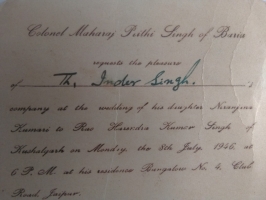 Colonel Maharaj Prithi Singh of Baria
requests the pleasure
of Th. Inder Singh.
company at the wedding of his daughter Niranjna
Kumari to Rao Harendra Kumar Singh of
Kushalgarh on Monday, the 8th July 1946, at
6 P.M. at his residence Bungalow No. 4, Club
Road, Jaipur.